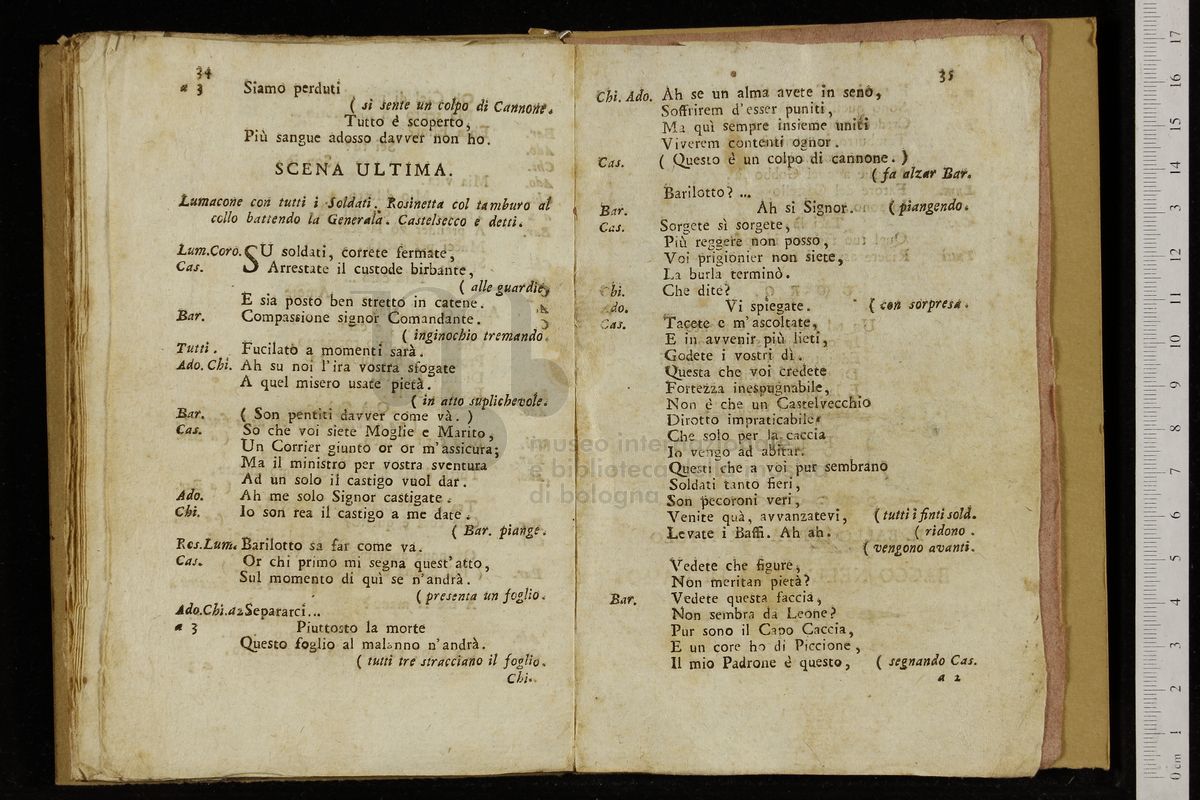 34
a 3 Siamo perduti
( si sente un colpo di Cannone.
Tutto è scoperto,
Più sangue adosso davver non ho.
SCENA ULTIMA.
Lumacone con tutti i Soldati. Rosinetta col tamburo al
collo battendo la Generala. Castelsecco e detti.
Lum.Coro. SU soldati, correte fermate,
Cas. Arrestate il custode birbante,
( alle guardie,
E sia posto ben stretto in catene.
Bar. Compassione signor Comandante.
( inginochio tremando.
Tutti. Fucilato a momenti sarà.
Ado. Chi. Ah su noi l'ira vostra sfogate
A quel misero usate pietà.
( in atto suplichevole.
Bar. ( Son pentiti davver come và. )
Cas. So che voi siete Moglie e Marito,
Un Corrier giunto or or m'assicura;
Ma il ministro per vostra sventura
Ad un solo il castigo vuol dar.
Ado. Ah me solo Signor castigate.
Chi. Io son rea il castigo a me date.
( Bar. piange.
Ros.Lum. Barilotto sa far come va.
Cas. Or chi primo mi segna quest'atto,
Sul momento di quì se n'andrà.
( presenta un foglio.
Ado.Chi.a2 Separarci...
a 3 Piuttosto la morte
Questo foglio al malanno n'andrà.
( tutti tre stracciano il foglio.
Chi.
35
Chi. Ado. Ah se un alma avete in seno,
Soffrirem d'esser puniti,
Ma quì sempre insieme uniti
Viverem contenti ognor.
Cas. ( Questo è un colpo di cannone. )
( fa alzar Bar.
Barilotto? ...
Bar. Ah si Signor. ( piangendo.
Cas. Sorgete sì sorgete,
Più reggere non posso,
Voi prigionier non siete,
La burla terminò.
Chi. Che dite?
Ado. Vi spiegate. ( con sorpresa.
Cas. Tacete e m'ascoltate,
E in avvenir più lieti,
Godete i vostri dì.
Questa che voi credete
Fortezza inespugnabile,
Non è che un Castelvecchio
Dirotto impraticabile,
Che solo per la caccia
Io vengo ad abitar.
Questi che a voi pur sembrano
Soldati tanto fieri,
Son pecoroni veri,
Venite quà, avvanzatevi, ( tutti i finti sold.
Levate i Baffi. Ah ah. ( ridono.
( vengono avanti.
Vedete che figure,
Non meritan pietà?
Bar. Vedete questa faccia,
Non sembra da Leone?
Pur sono il Capo Caccia,
E un core ho di Piccione,
Il mio Padrone è questo, ( segnando Cas.
a 2
museo internazionale
e biblioteca della musica
di bologna
0 cm 1 2 3 4 5 6 7 8 9 10 11 12 13 14 15 16 17